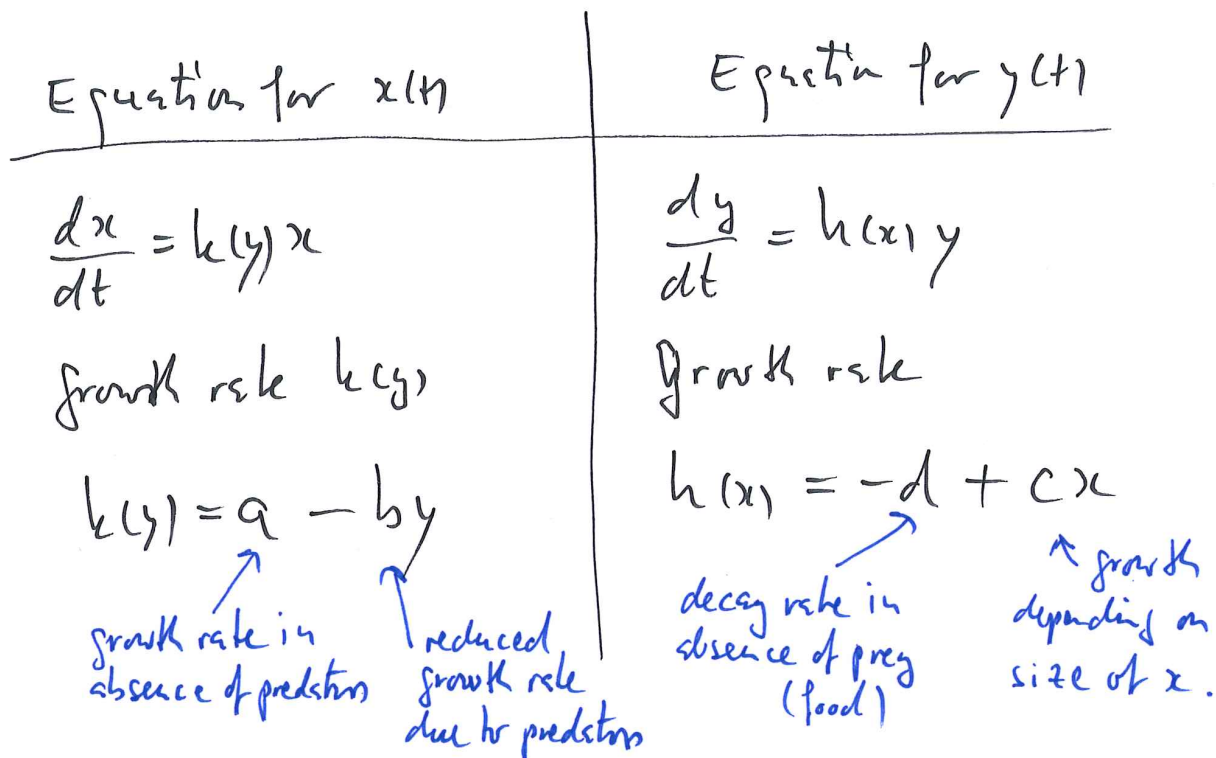 Equation for x(t)
dx/dt = k(y) x
growth rate k(y)
k(y) = a - by
growth rate in
absence of predators
reduced
growth rate
due to predators
Equation for y(t)
dy/dt = h(x) y
Growth rate
h(x) = -d + cx
decay rate in
absence of prey
(food)
growth
depending on
size of x.